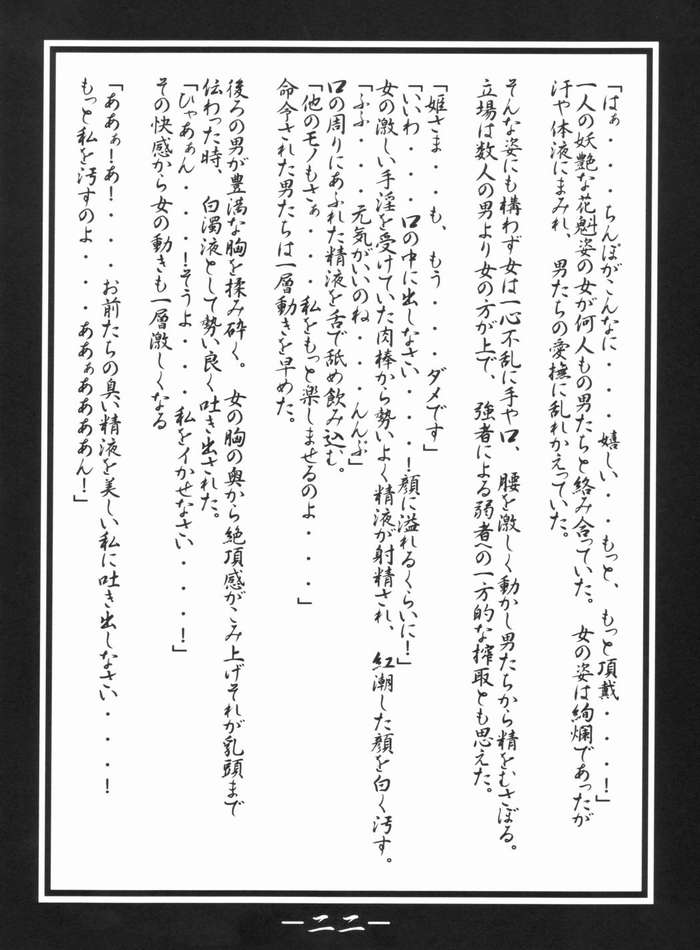 「はぁ・・・ちんぽがこんなに・・・嬉しい・・もっと、もっと頂戴・・・！」
一人の妖艶な花魁姿の女が何人もの男たちと絡み合っていた。女の姿は絢爛であったが
汗や体液にまみれ、男たちの愛撫に乱れかえっていた。
そんな姿にも構わず女は一心不乱に手や口、腰を激しく動かし男たちから精をむさぼる。
立場は数人の男より女の方が上で、強者による弱者への一方的な搾取とも思えた。
「姫さま・・も、もう・・・ダメです」
「いいわ・・・口の中に出しなさい・・・！顔に溢れるくらいに！」
女の激しい手淫を受けていた肉棒から勢いよく精液が射精され、紅潮した顔を白く汚す。
「ふふ・・・元気がいいのね・・・んんぶ」
口の周りにあふれた精液を舌で舐め飲み込む。
「他のモノもさぁ・・・私をもっと楽しませるのよ・・・」
命令された男たちは一層動きを早めた。
後ろの男が豊満な胸を揉み砕く。女の胸の奥から絶頂感がこみ上げそれが乳頭まで
伝わった時、白濁液として勢い良く吐き出された。
「ひゃあぁん・・・！そうよ・・・私をイかせなさい・・・！」
その快感から女の動きも一層激しくなる
「ああぁ！あ！・・・お前たちの臭い精液を美しい私に吐き出しなさい・・・！
もっと私を汚すのよ・・・ああぁああああん！」
－二二－